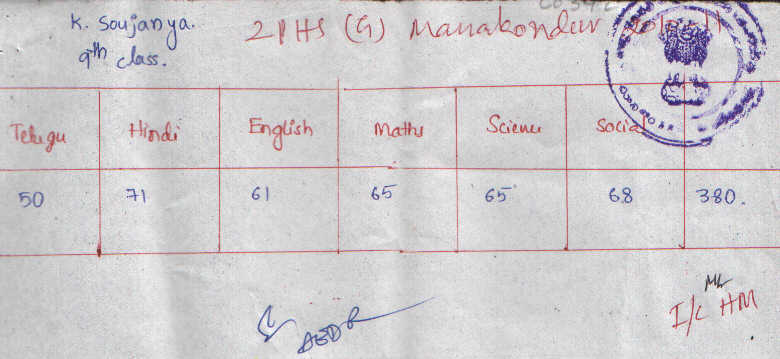 K. Soujanya. ZPHS (G) Manakondur
9th class.
Telugu Hindi English Maths Science Social
50 71 61 65 65 68 380.
I/c HM